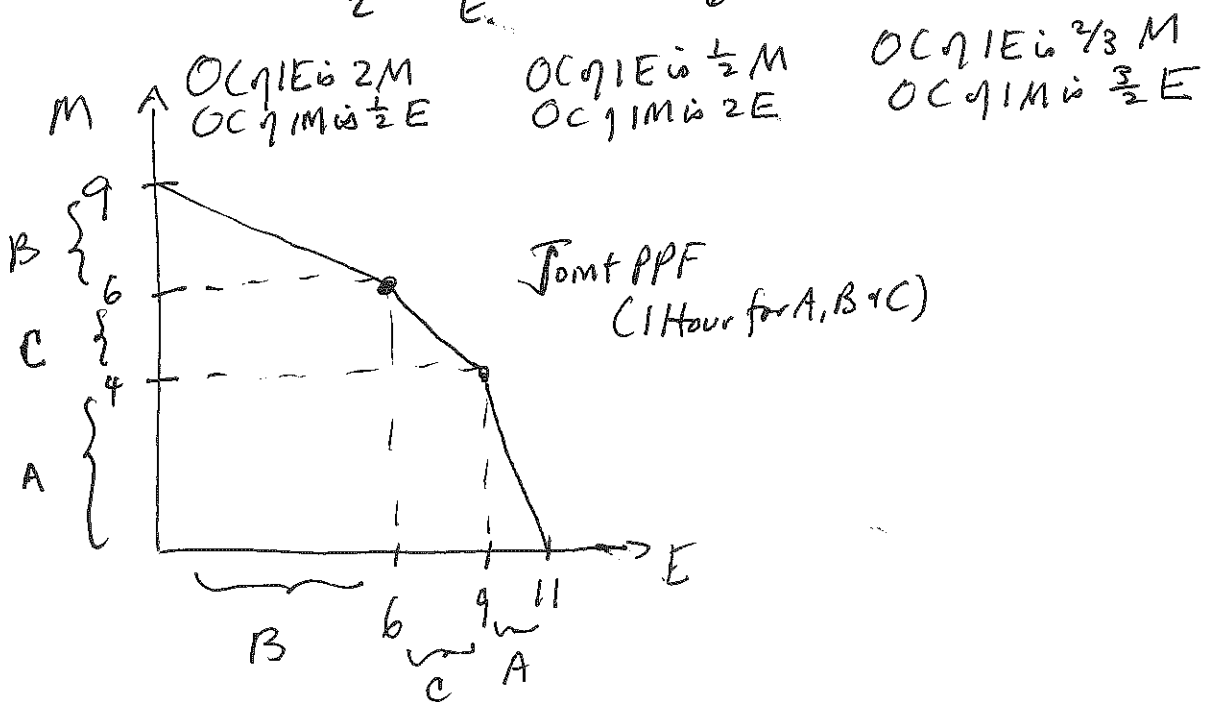 2 E.
OC of 1E is 2M OC of 1E is 1/2 M OC of 1E is 2/3 M
OC of 1M is 1/2 E OC of 1M is 2E OC of 1M is 3/2 E
M
9
B
6
Joint PPF
(1 Hour for A, B & C)
C
4
A
E
6 9 11
B
C A